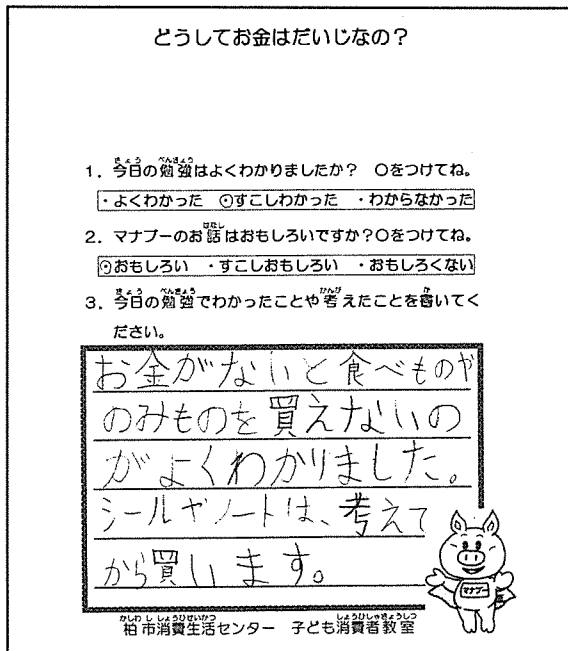 どうしてお金はだいじなの？
1．今日の勉強はよくわかりましたか？ ○をつけてね。
・よくわかった ・すこしわかった ・わからなかった
2．マナブーのお話はおもしろいですか？○をつけてね。
・おもしろい ・すこしおもしろい ・おもしろくない
3．今日の勉強でわかったことや考えたことを書いてく
ださい。
お金がないと食べものや
のみものを買えないの
がよくわかりました。
シールやノートは、考えて
から買います。
マナブー
柏市消費生活センター 子ども消費者教室